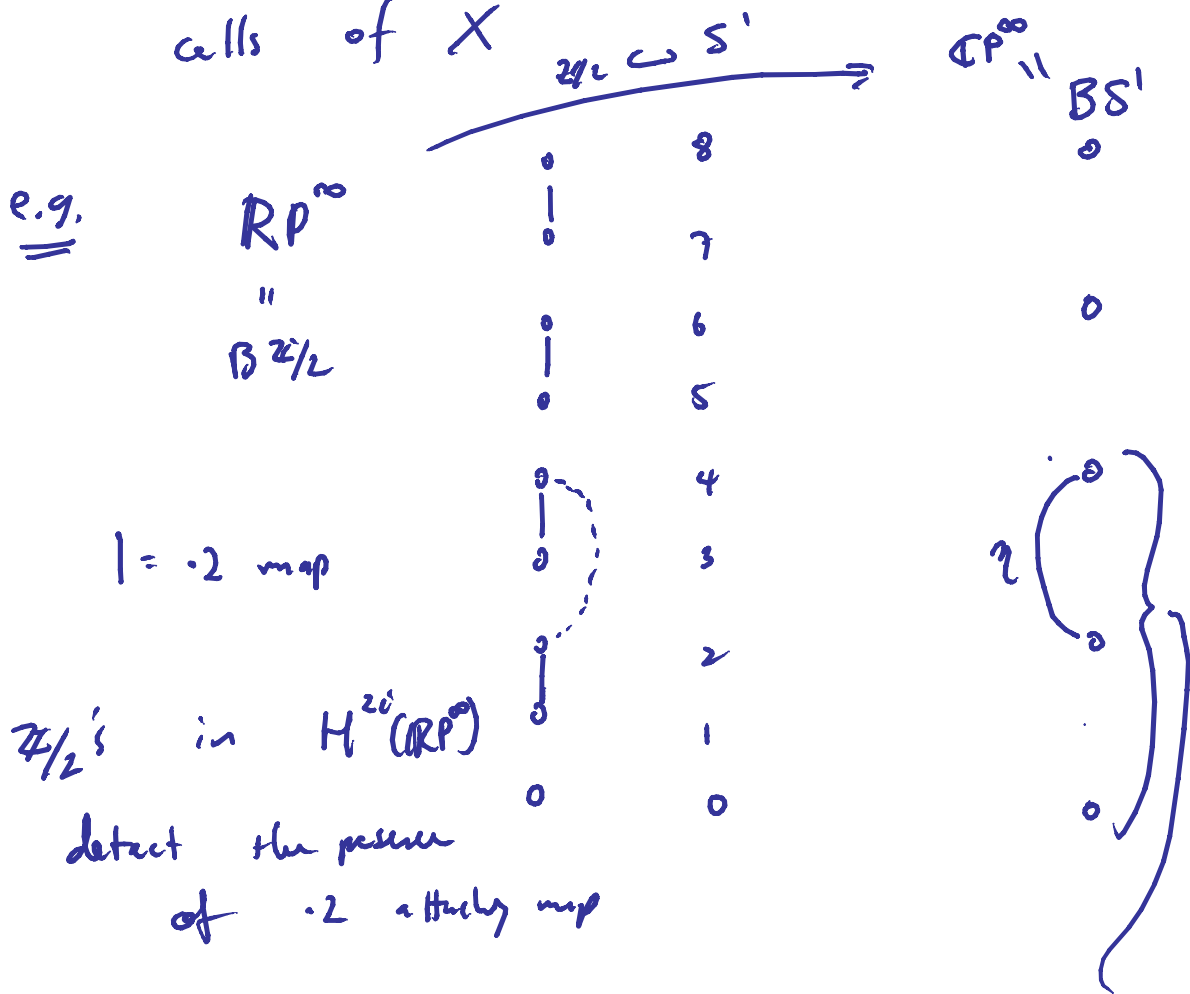 cells of X
ℤ/2 ↪ S¹
ℂP^∞
"
BS¹
8
e.g. ℝP^∞
7
"
Bℤ/2
6
5
4
| = ·2 map
3
η
2
ℤ/2's in H^{2i}(ℝP^∞)
1
0
detect the presence
of ·2 attaching map